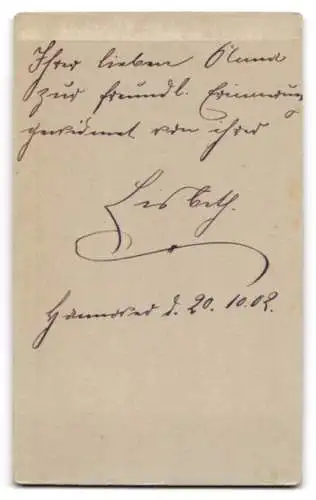 Ihrer lieben Anna
zur freundl. Erinnerung
gewidmet von ihrer
Lisbeth.
Hannover d. 20. 10. 02.